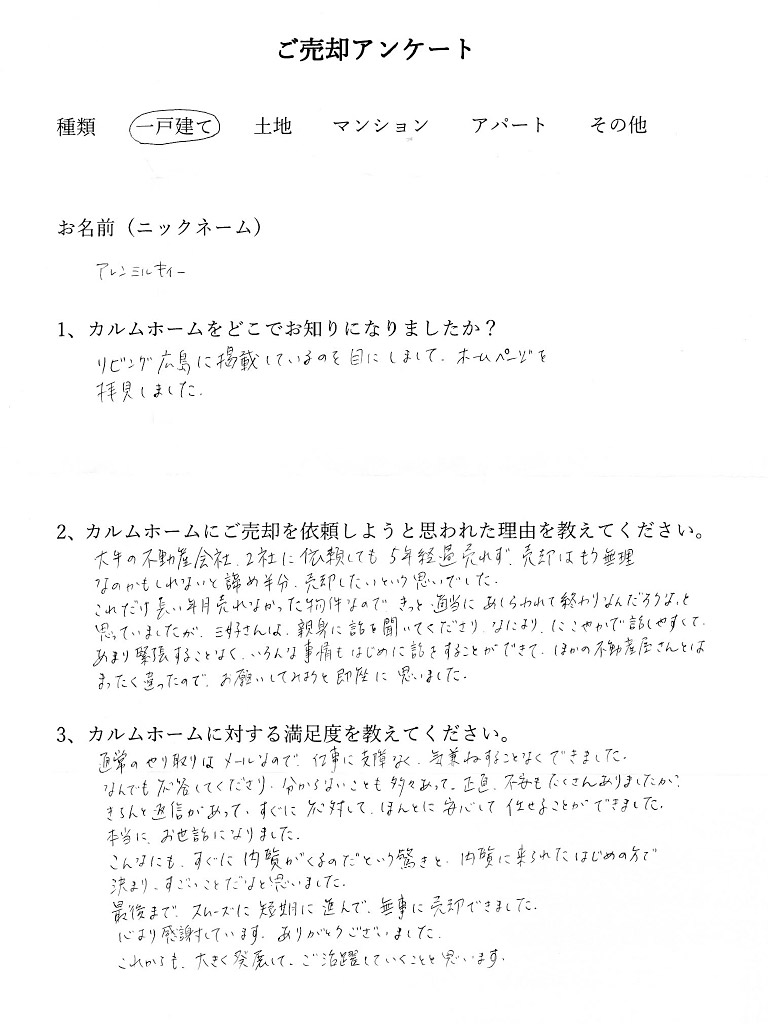 ご売却アンケート
種類 一戸建て 土地 マンション アパート その他
お名前（ニックネーム）
アレンミルキィー
1、カルムホームをどこでお知りになりましたか？
リビング広島に掲載しているのを目にしまして、ホームページを
拝見しました.
2、カルムホームにご売却を依頼しようと思われた理由を教えてください。
大手の不動産会社、2社に依頼しても5年経過売れず、売却はもう無理
なのかもしれないと諦め半分、売却したいという思いでした.
これだけ長い年月売れなかった物件なので、きっと適当にあしらわれて終わりなんだろうな、と
思っていましたが、三好さんは、親身に話を聞いてくださり、なにより、にこやかで話しやすくて、
あまり緊張することなく、いろんな事情もはじめに話をすることができて、ほかの不動産屋さんとは
まったく違ったので、お願いしてみようと即座に思いました.
3、カルムホームに対する満足度を教えてください。
通常のやり取りはメールなので、仕事に支障なく、気兼ねすることなくできました.
なんでも応答してくださり、分からないことも多々あって、正直、不安もたくさんありましたが、
きちんと返信があって、すぐに応対して、ほんとに安心して任せることができました.
本当に、お世話になりました.
こんなにも、すぐに内覧がくるのだという驚きと、内覧に来られたはじめの方で
決まり、すごいことだなと思いました.
最後まで、スムーズに短期に進んで、無事に売却できました.
心より感謝しています. ありがとうございました.
これからも、大きく発展して、ご活躍していくことと思います.